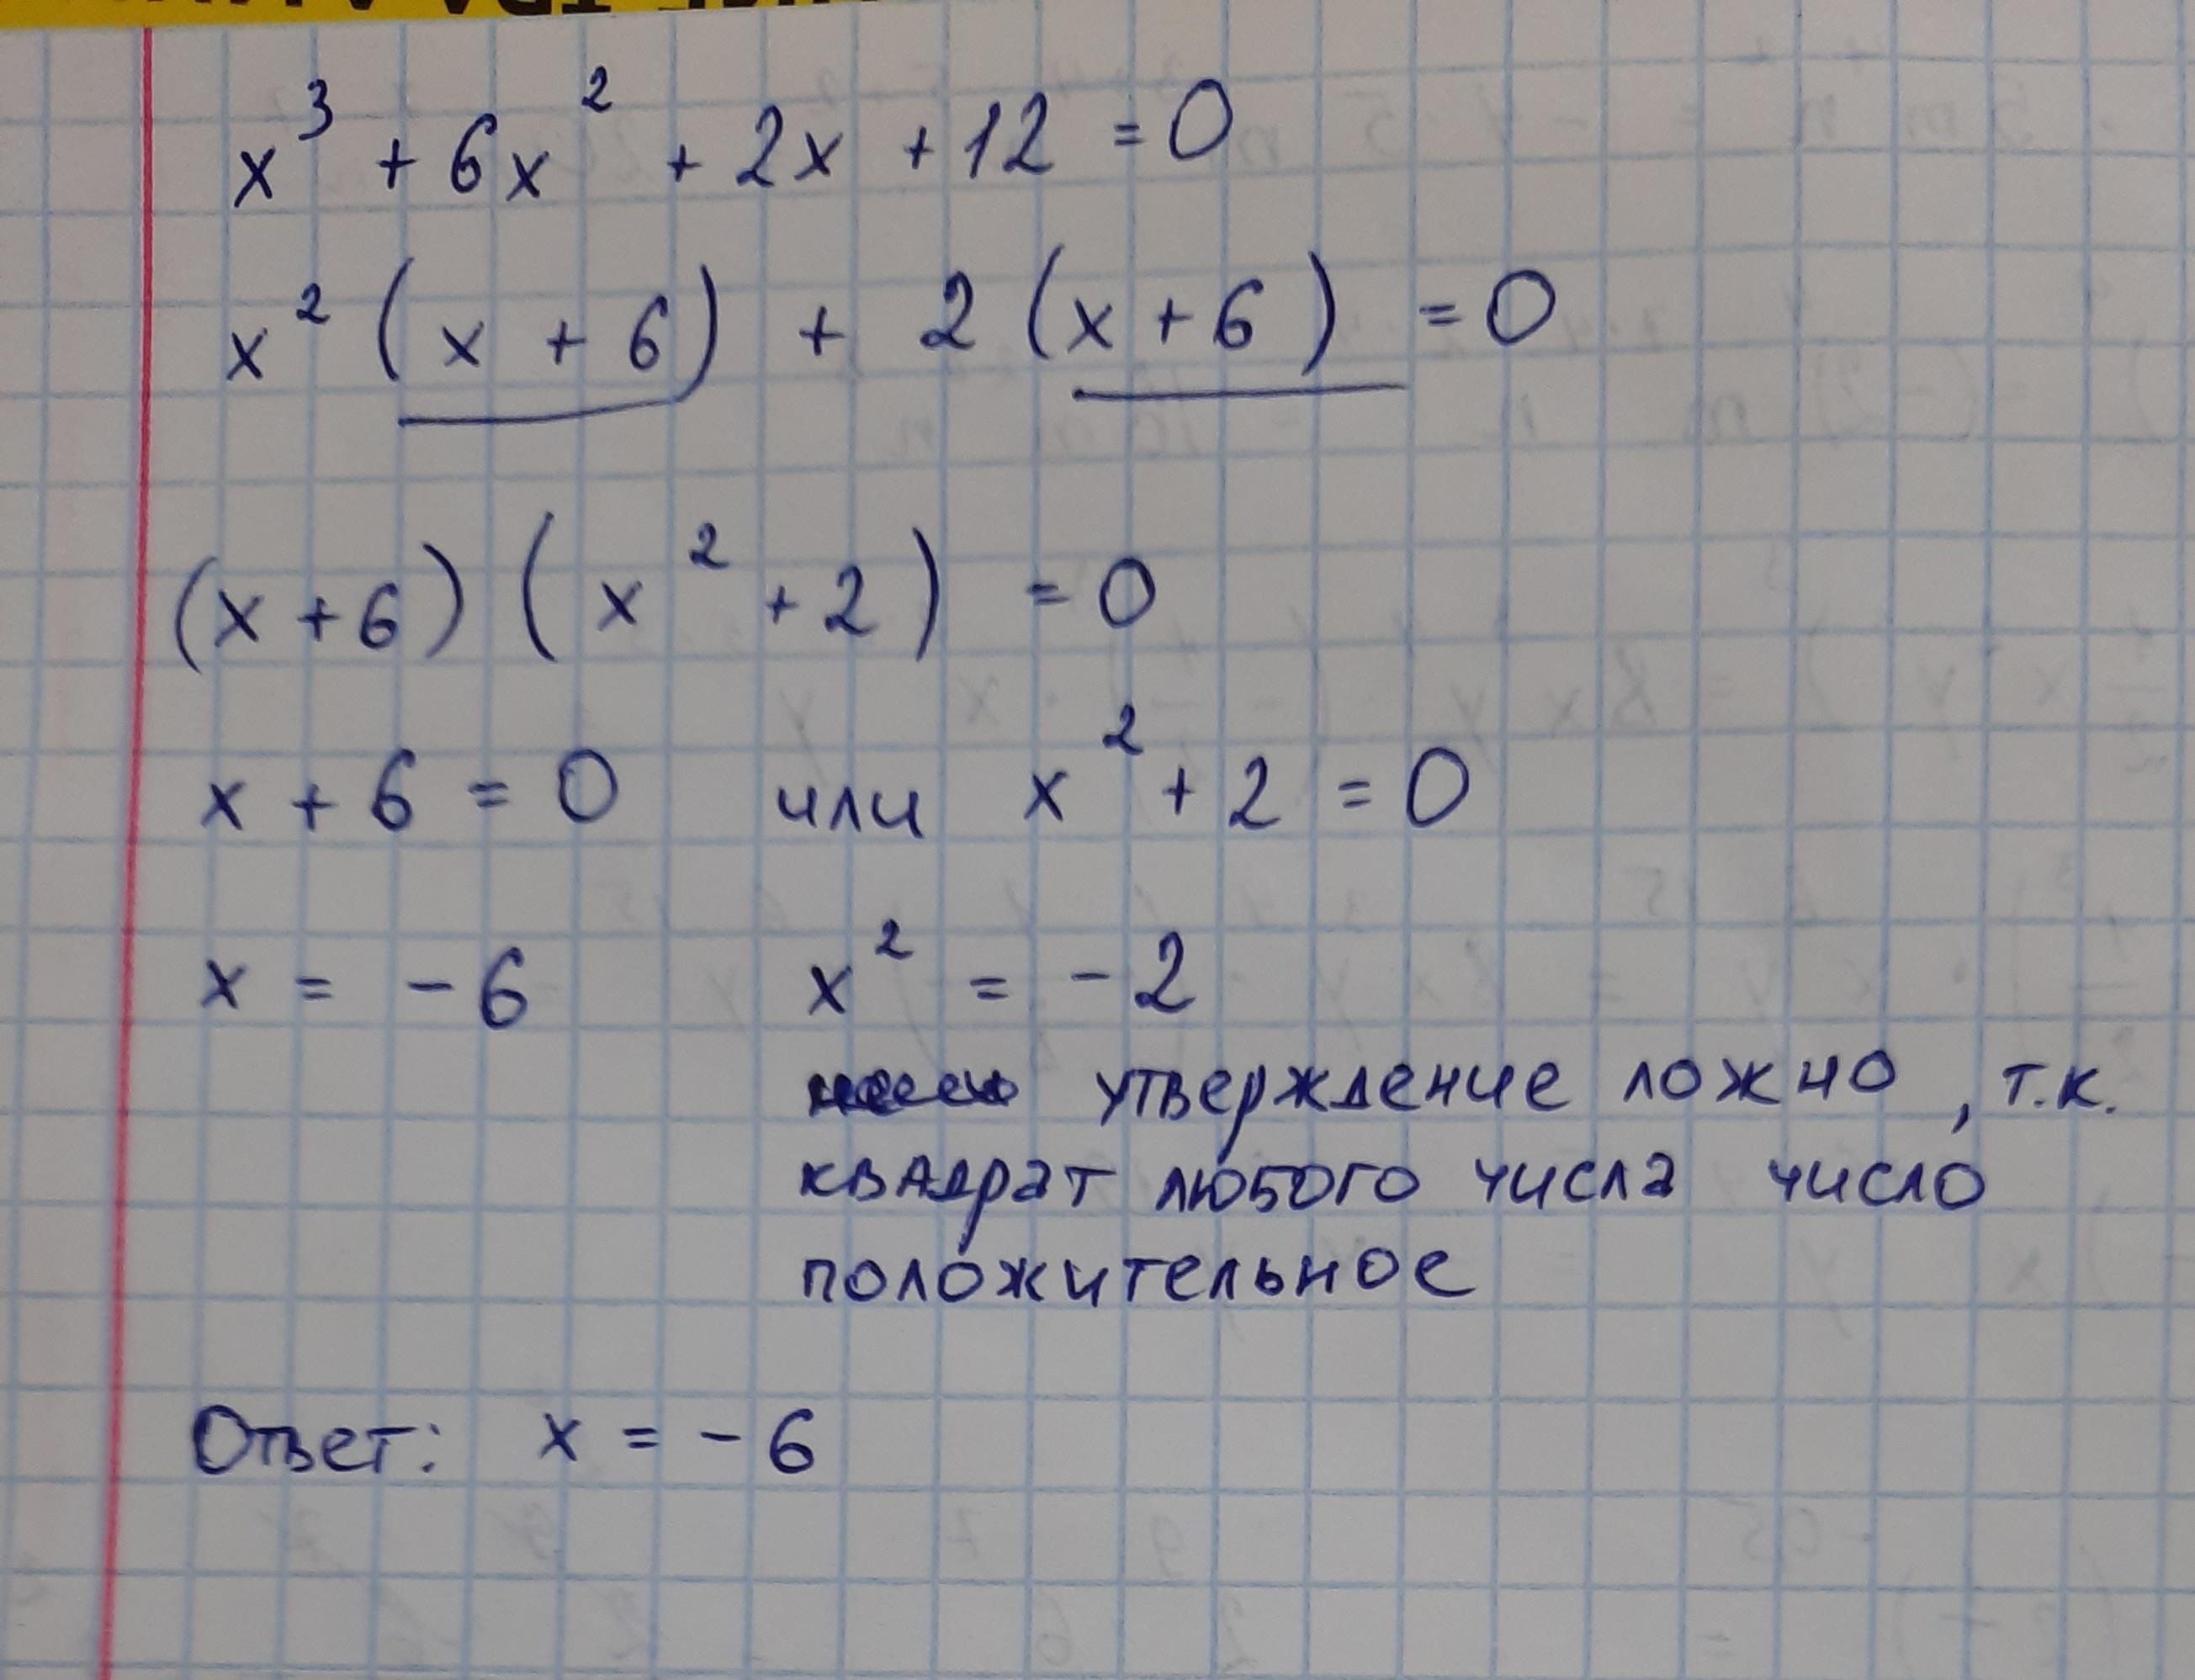 x³ + 6x² + 2x + 12 = 0
x² (x + 6) + 2 (x + 6) = 0
(x + 6) (x² + 2) = 0
x + 6 = 0 или x² + 2 = 0
x = - 6 x² = - 2
утверждение ложно, т.к.
квадрат любого числа число
положительное
Ответ: x = - 6